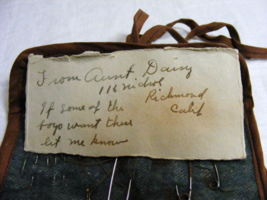 From Aunt Daisy
116 Nichol
Richmond
Calif
If some of the
boys want these
let me know